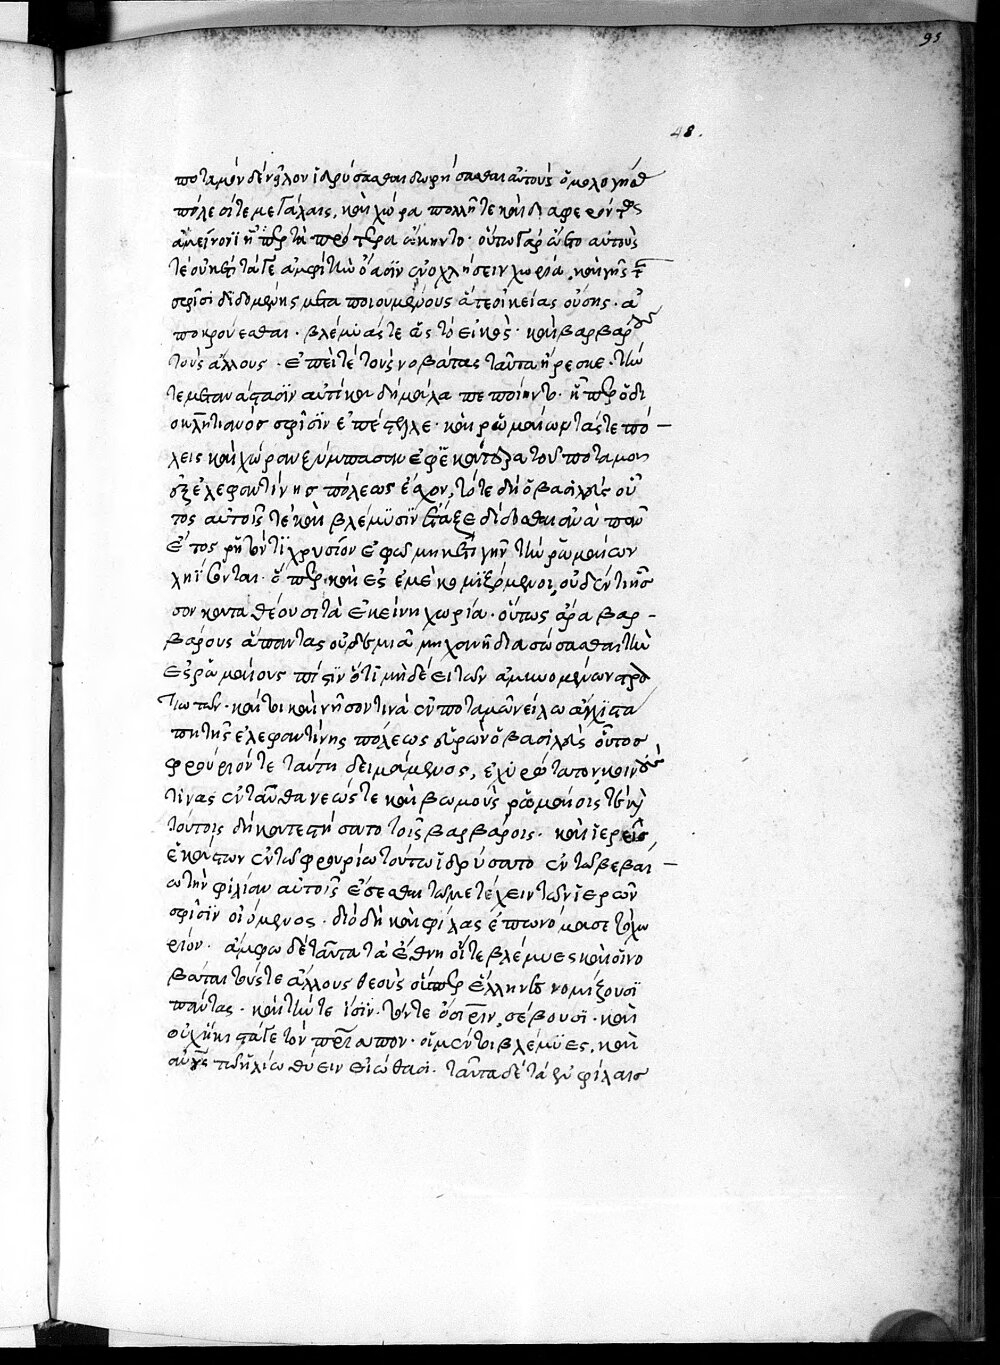 95
48.
ποταμὸν δὲ νεῖλον ἱδρύσασθαι δωρήσασθαι αὐτοὺς ὁμολογήσας
πόλεσί τε μεγάλαις, καὶ χώρα πολλῆ τε καὶ διαφερόντως
ἀμείνονι ἥπερ τὰ πρότερα ὤκηντο. οὕτω γὰρ ὤετο αὐτοὺς
τε οὐκέτι τά γε ἀμφὶ τὴν ὄασιν ἐνοχλήσειν χωρία, καὶ γῆς τῆς
σφίσι διδομένης μεταποιουμένους ἅτε οἰκείας οὔσης. ἀ
ποκρούεσθαι. βλέμυάς τε ὡς τὸ εἰκὸς. καὶ βαρβάρους
τοὺς ἄλλους. ἐπεί τε τοὺς νοβάτας ταῦτα ἤρεσκε. τήν
τε μετανάστασιν αὐτίκα δὴ μάλα πεποίηντο. ἧπερ ὁ δι
οκλητιανὸς σφίσιν ἐπέστελλε. καὶ ῥωμαίων τάς τε πό
λεις καὶ χώραν ξύμπασαν ἐφ' ἑκάτερα τοῦ ποταμοῦ
ἐξ ἐλεφαντίνης πόλεως ἔσχον, τότε δὴ ὁ βασιλεὺς οὗ
τος αὐτοῖς τε καὶ βλέμυσιν ἔταξε δίδοσθαι ἀνὰ πᾶν
ἔτος ῥητόν τι χρυσίον ἐφ' ὧ μηκέτι γῆν τὴν ῥωμαίων
ληίσονται. ὅπερ καὶ ἐς ἐμὲ κομιζόμενοι, οὐδέν τι ἧσ
σον καταθέουσι τὰ ἐκείνη χωρία. οὕτως ἄρα βαρ
βάρους ἅπαντας οὐδεμία μηχανὴ διασώσασθαι τὴν
ἐς ῥωμαίους πίστιν ὅτι μὴ δέει τῶν ἀμυνομένων στρα
τιωτῶν. καίτοι καὶ νῆσόν τινα ἐν ποταμῶ νείλω ἄγχιστά
πη τῆς ἐλεφαντίνης πόλεως εὑρὼν ὁ βασιλεὺς οὗτος
φρούριόν τε ταύτη δειμάμενος, ἐχυρώτατον, κοινούς
τινας ἐνταῦθα νεώς τε καὶ βωμοὺς ῥωμαίοις τε καὶ
τούτοις δὴ κατεστήσατο τοῖς βαρβάροις. καὶ ἱερεῖς
ἑκάστων ἐν τῶ φρουρίω τούτω ἱδρύσατο ἐν τῶ βεβαί
ω τὴν φιλίαν αὐτοῖς ἔσεσθαι τῶ μετέχειν τῶν ἱερῶν
σφίσιν οἰόμενος. διὸ δὴ καὶ φίλας ἐπωνόμασε τὸ χω
ρίον. ἄμφω δὲ ταῦτα τὰ ἔθνη οἵ τε βλέμυες καὶ οἱ νο
βάται τούς τε ἄλλους θεοὺς οὕσπερ ἕλληνες νομίζουσι
πάντας. καὶ τήν τε ἶσιν. τόν τε ὄσιριν, σέβουσι. καὶ
οὐχ ἥκιστά γε τὸν πρίαπον. οἱ μέντοι βλέμυες, καὶ
ἀνθρώπους τῶ ἡλίω θύειν εἰώθασι. ταῦτα δὲ τὰ ἐν φίλαις